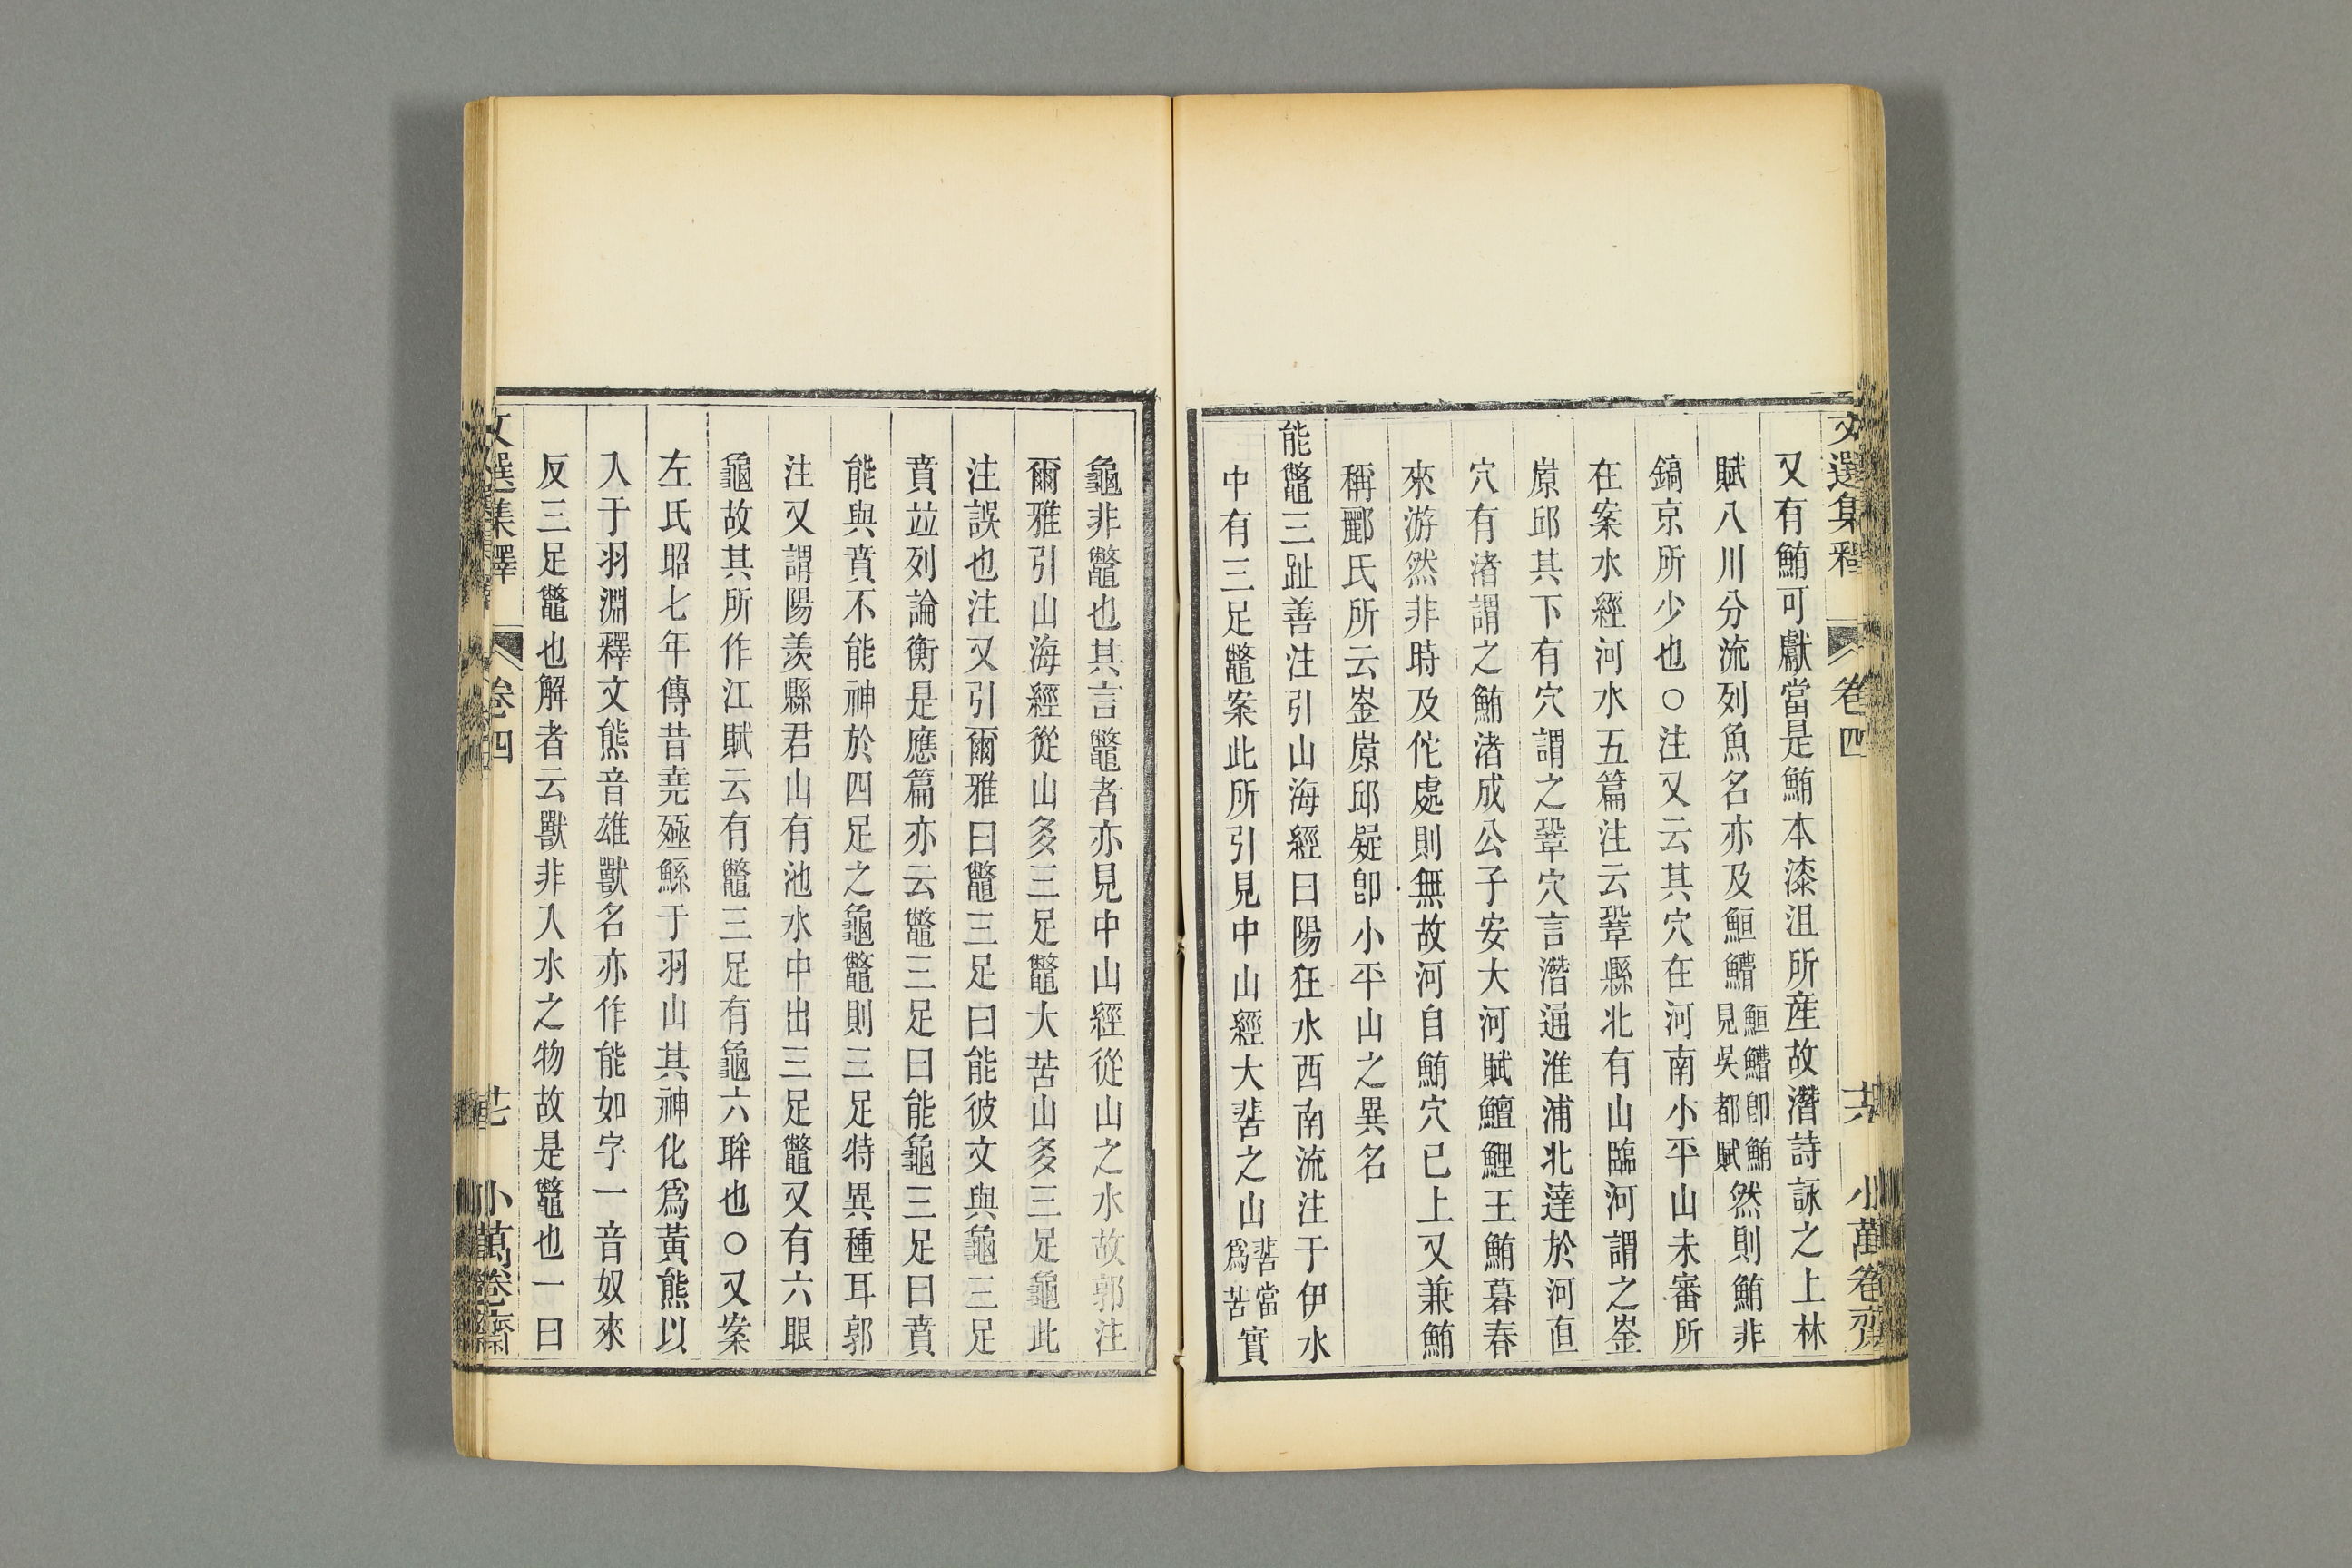 文選集釋 卷四 六 小萬卷齋
又有鮪可獻當是鮪本漆沮所產故潛詩詠之上林
賦八川分流列魚名亦及䱎鰽䱎鰽卽鮪見吳都賦然則鮪非
鎬京所少也○注又云其穴在河南小平山未審所
在案水經河水五篇注云鞏縣北有山臨河謂之崟
原邱其下有穴謂之鞏穴言潛通淮浦北達於河直
穴有渚謂之鮪渚成公子安大河賦鱣鯉王鮪暮春
來游然非時及佗處則無故河自鮪穴已上又兼鮪
稱酈氏所云崟原邱疑卽小平山之異名
能鼈三趾善注引山海經曰陽狂水西南流注于伊水
中有三足鼈案此所引見中山經大𦭘之山𦭘當爲苦實
龜非鼈也其言鼈者亦見中山經從山之水故郭注
爾雅引山海經從山多三足鼈大苦山多三足龜此
注誤也注又引爾雅曰鼈三足曰能彼文與龜三足
賁竝列論衡是應篇亦云鼈三足曰能龜三足曰賁
能與賁不能神於四足之龜鼈則三足特異種耳郭
注又謂陽羨縣君山有池水中出三足鼈又有六眼
龜故其所作江賦云有鼈三足有龜六眸也○又案
左氏昭七年傳昔堯殛鯀于羽山其神化爲黃熊以
入于羽淵釋文熊音雄獸名亦作能如字一音奴來
反三足鼈也解者云獸非入水之物故是鼈也一曰
文選集釋 卷四 小萬卷齋